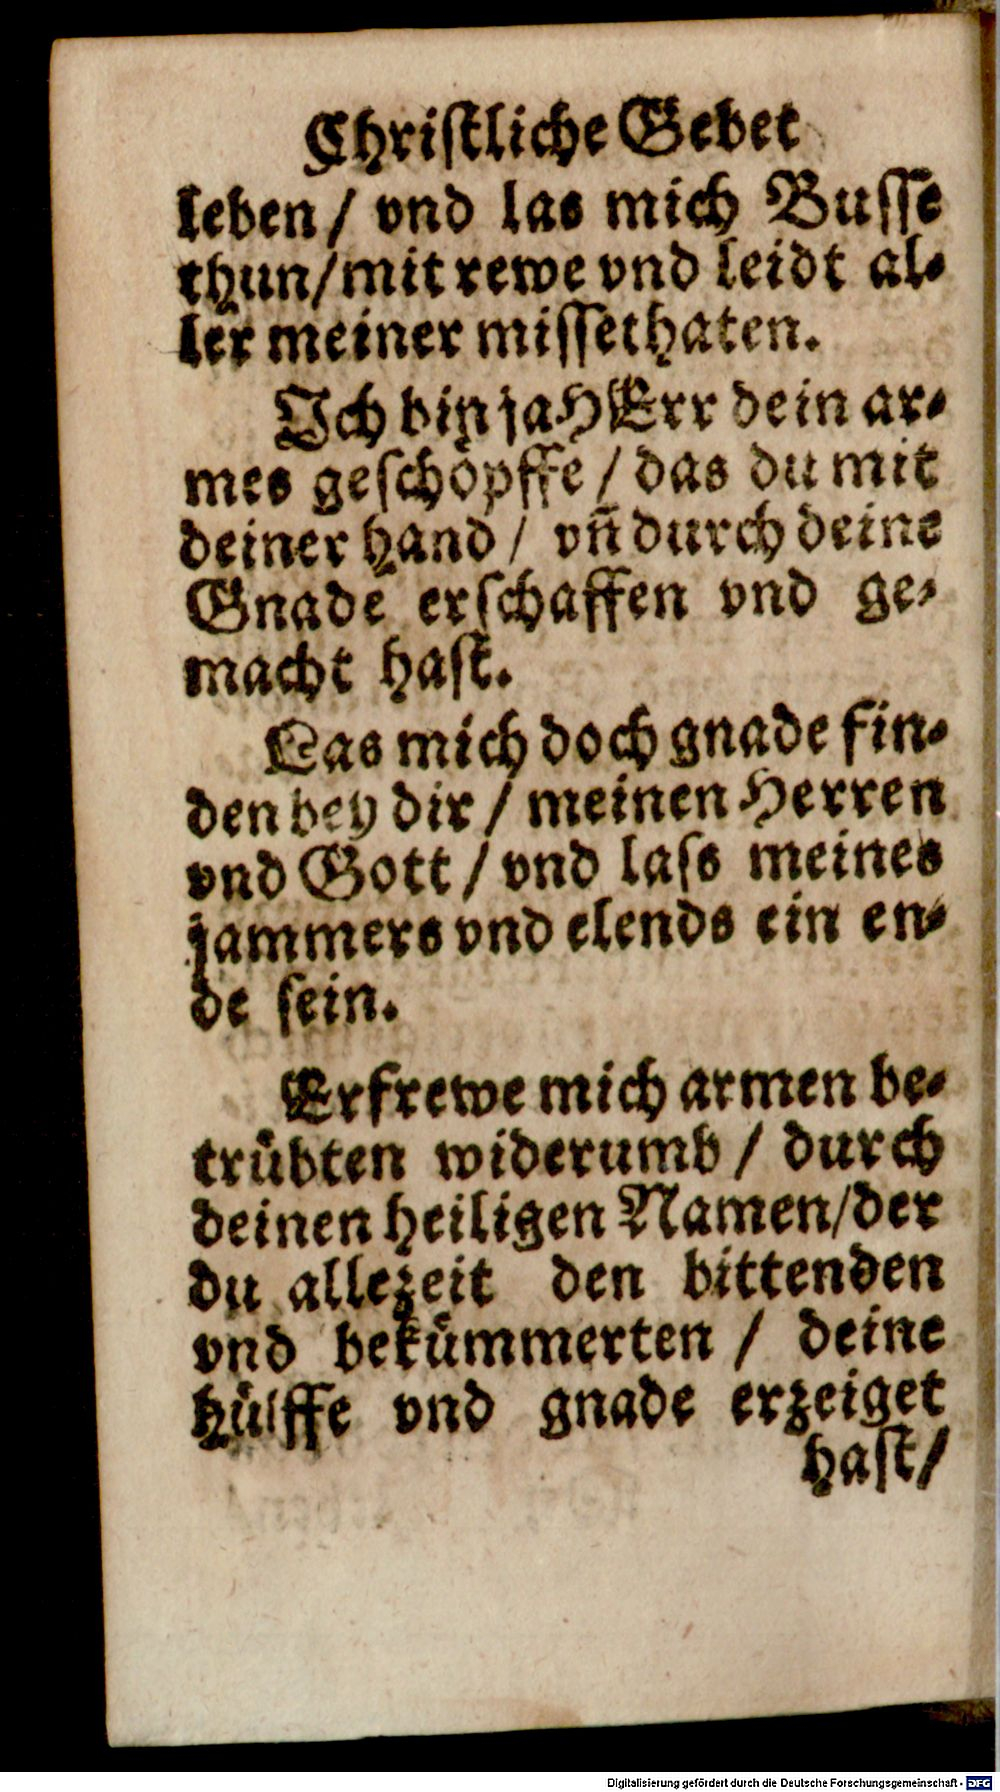 Christliche Gebet
leben / vnd las mich Busse
thun/mit rewe vnd leidt al⸗
ler meiner missethaten.
Ich bin ja HErr dein ar⸗
mes geschöpffe / das du mit
deiner hand / vñ durch deine
Gnade erschaffen vnd ge⸗
macht hast.
Las mich doch gnade fin⸗
den bey dir / meinen Herren
vnd Gott / vnd lass meines
jammers vnd elends ein en⸗
de sein.
Erfrewe mich armen be⸗
trübten widerumb / durch
deinen heiligen Namen/der
du allezeit den bittenden
vnd bekümmerten / deine
hülffe vnd gnade erzeiget
hast/
Digitalisierung gefördert durch die Deutsche Forschungsgemeinschaft - DFG